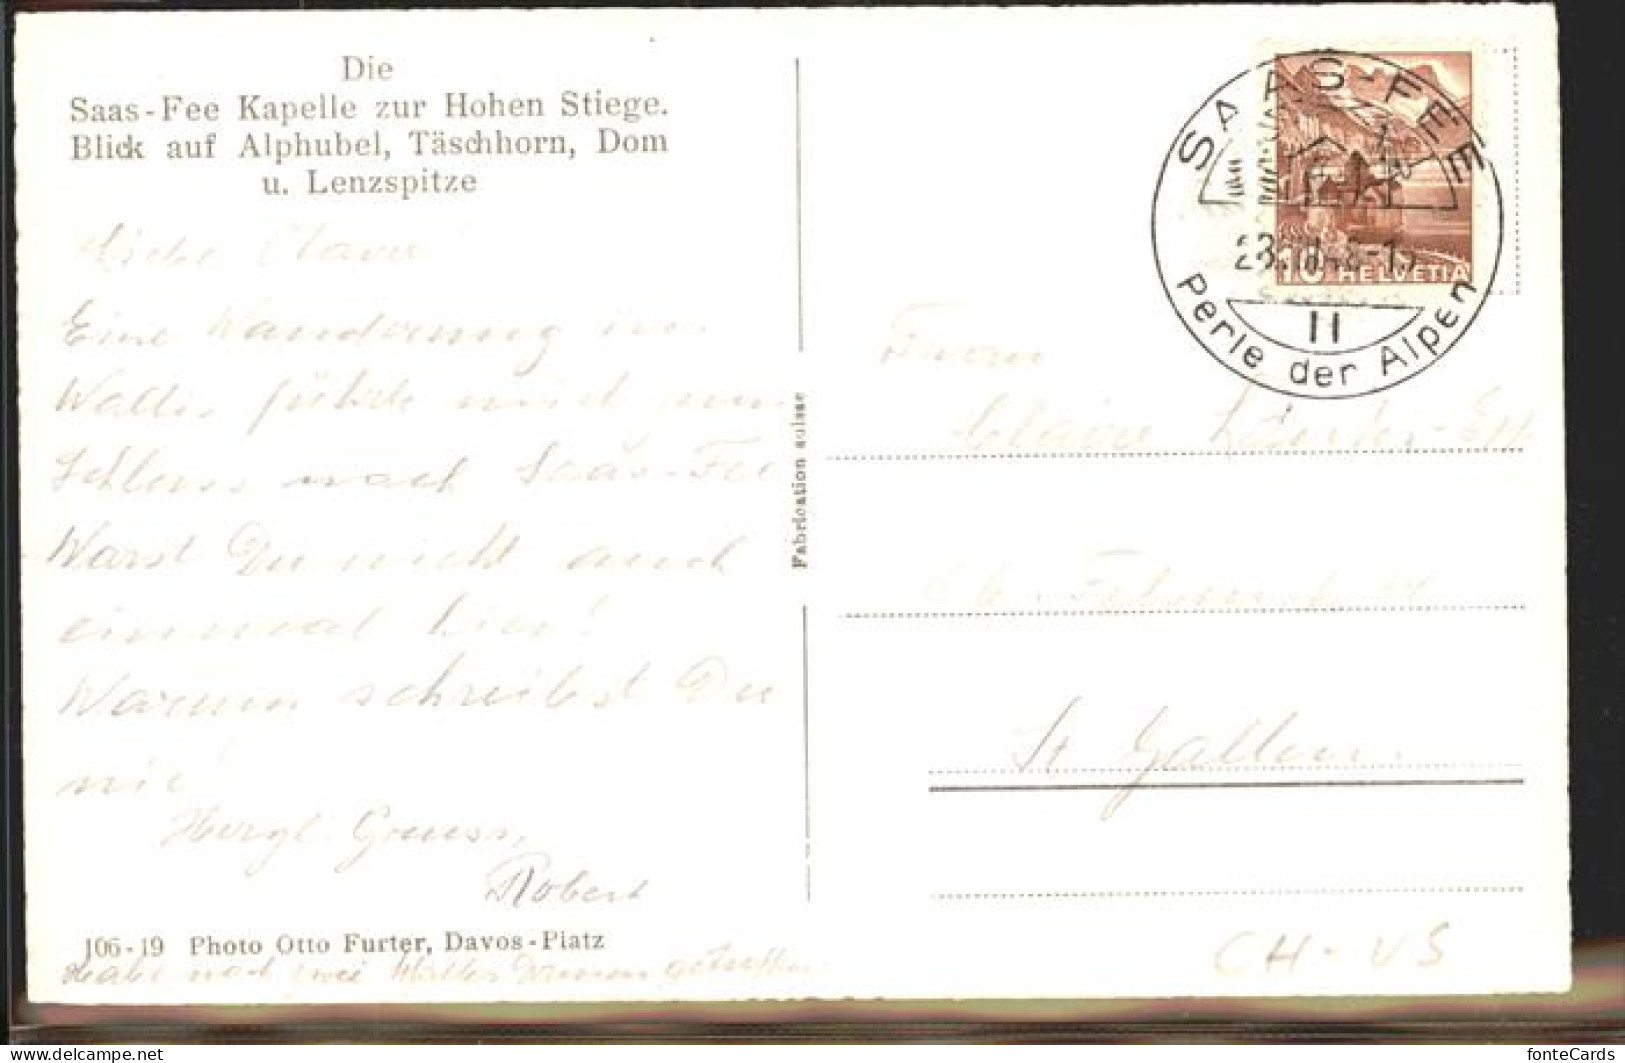 Die
Saas-Fee Kapelle zur Hohen Stiege.
Blick auf Alphubel, Täschhorn, Dom
u. Lenzspitze
Liebe
Eine Wanderung im
Wallis führte mich zum
Schluss nach Saas-Fee
Warst Du nicht auch
einmal hier!
Warum schreibst Du
nie!
Herzl. Gruss,
Robert
106-19 Photo Otto Furter, Davos-Platz
Habe noch zwei getroffen
Fabrication suisse
SAAS-FEE
10 HELVETIA
II
Perle der Alpen
Frau
St Gallen
CH-VS
fonteCards
www.delcampe.net